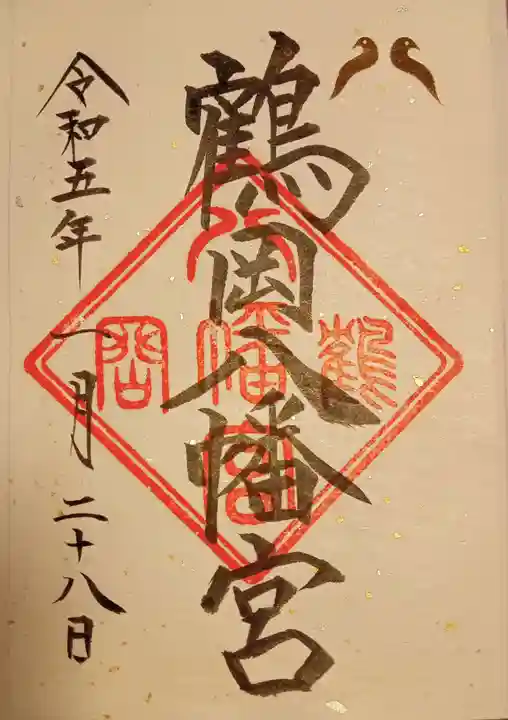 鶴岡八幡宮
令和五年一月二十八日
鶴
八幡宮
岡